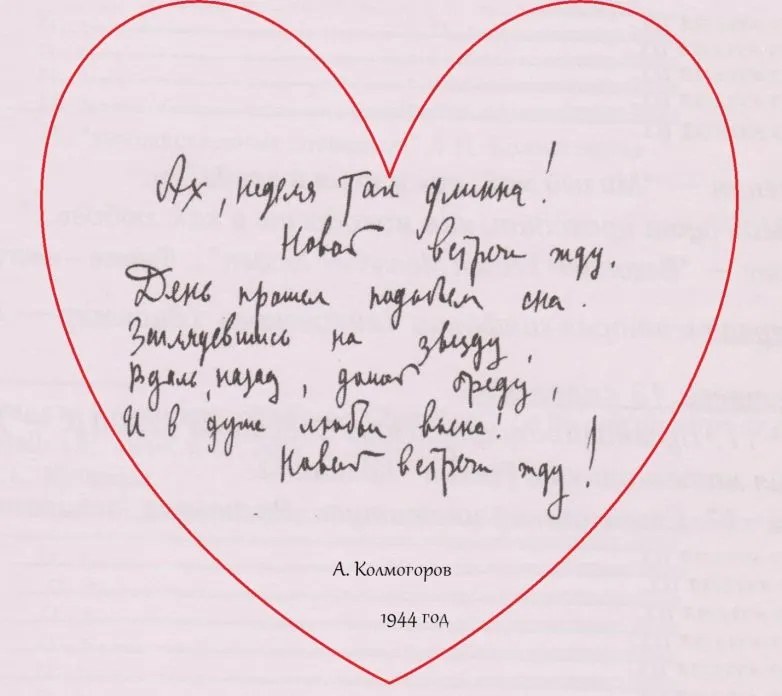 Ах, неделя так длинна!
Новой встречи жду.
День прошел подобьем сна.
Заглядевшись на звезду,
Вдаль, назад, домой бреду,
И в душе любви весна.
Новой встречи жду!
А. Колмогоров
1944 год